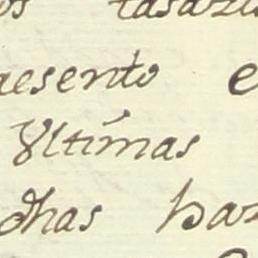 os tasazi
aesento e
Ultimas
dhas haz